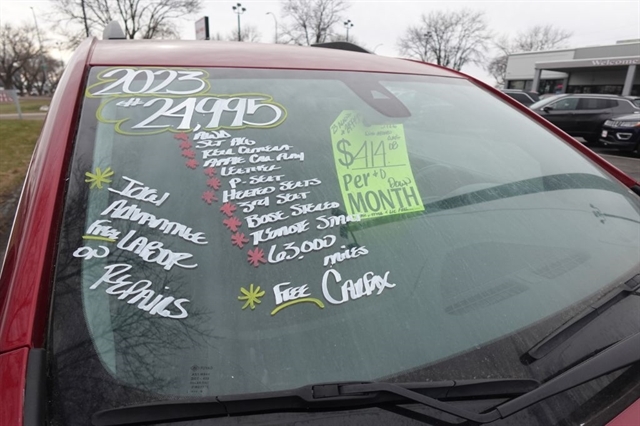 2023
$24,995
AWD
SLT PKG
Rear Camera
Apple Car Play
Leather
P-Seat
Heated Seats
3rd Seat
Bose Stereo
Remote Start
63,000
miles
Free Carfax
Iowa
Advantage
Free Labor
on
Repairs
$414
Per
MONTH
Welcome